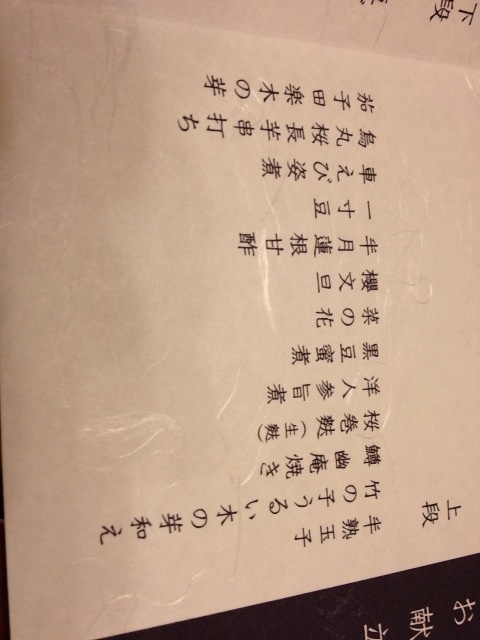 お献立
上段
半熟玉子
竹の子うるい木の芽和え
鱒幽庵焼き
桜巻麩(生麩)
洋人参旨煮
黒豆蜜煮
菜の花
櫻文旦
半月蓮根甘酢
一寸豆
車えび姿煮
烏丸桜長芋串打ち
茄子田楽木の芽
下段